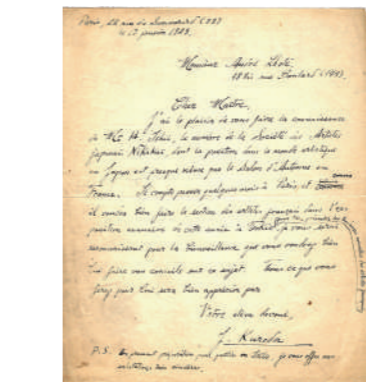 Paris, 22 rue du
le 17 janvier 1929.
Monsieur André Lhote
18 bis rue
Cher Maître,
J'ai le plaisir de vous faire la connaissance
de Mr. H. Ishii, le membre de la Société des Artistes
japonais Nikakai, dont la position dans le monde artistique
au Japon est presque même que le Salon d'Automne en
France. Il compte passer quelques mois à Paris, et
il voudra bien faire la section des artistes français dans l'ex-
position annuelle de cette année à Tokio, je vous serai
reconnaissant pour la bienveillance que vous voudrez bien
lui faire vos conseils sur ce sujet. Tous ce que vous
ferez pour lui sera bien apprécié par
Votre élève dévoué,
J. Kuroda
P.S. En je vous offre mes
salutations bien sincères.